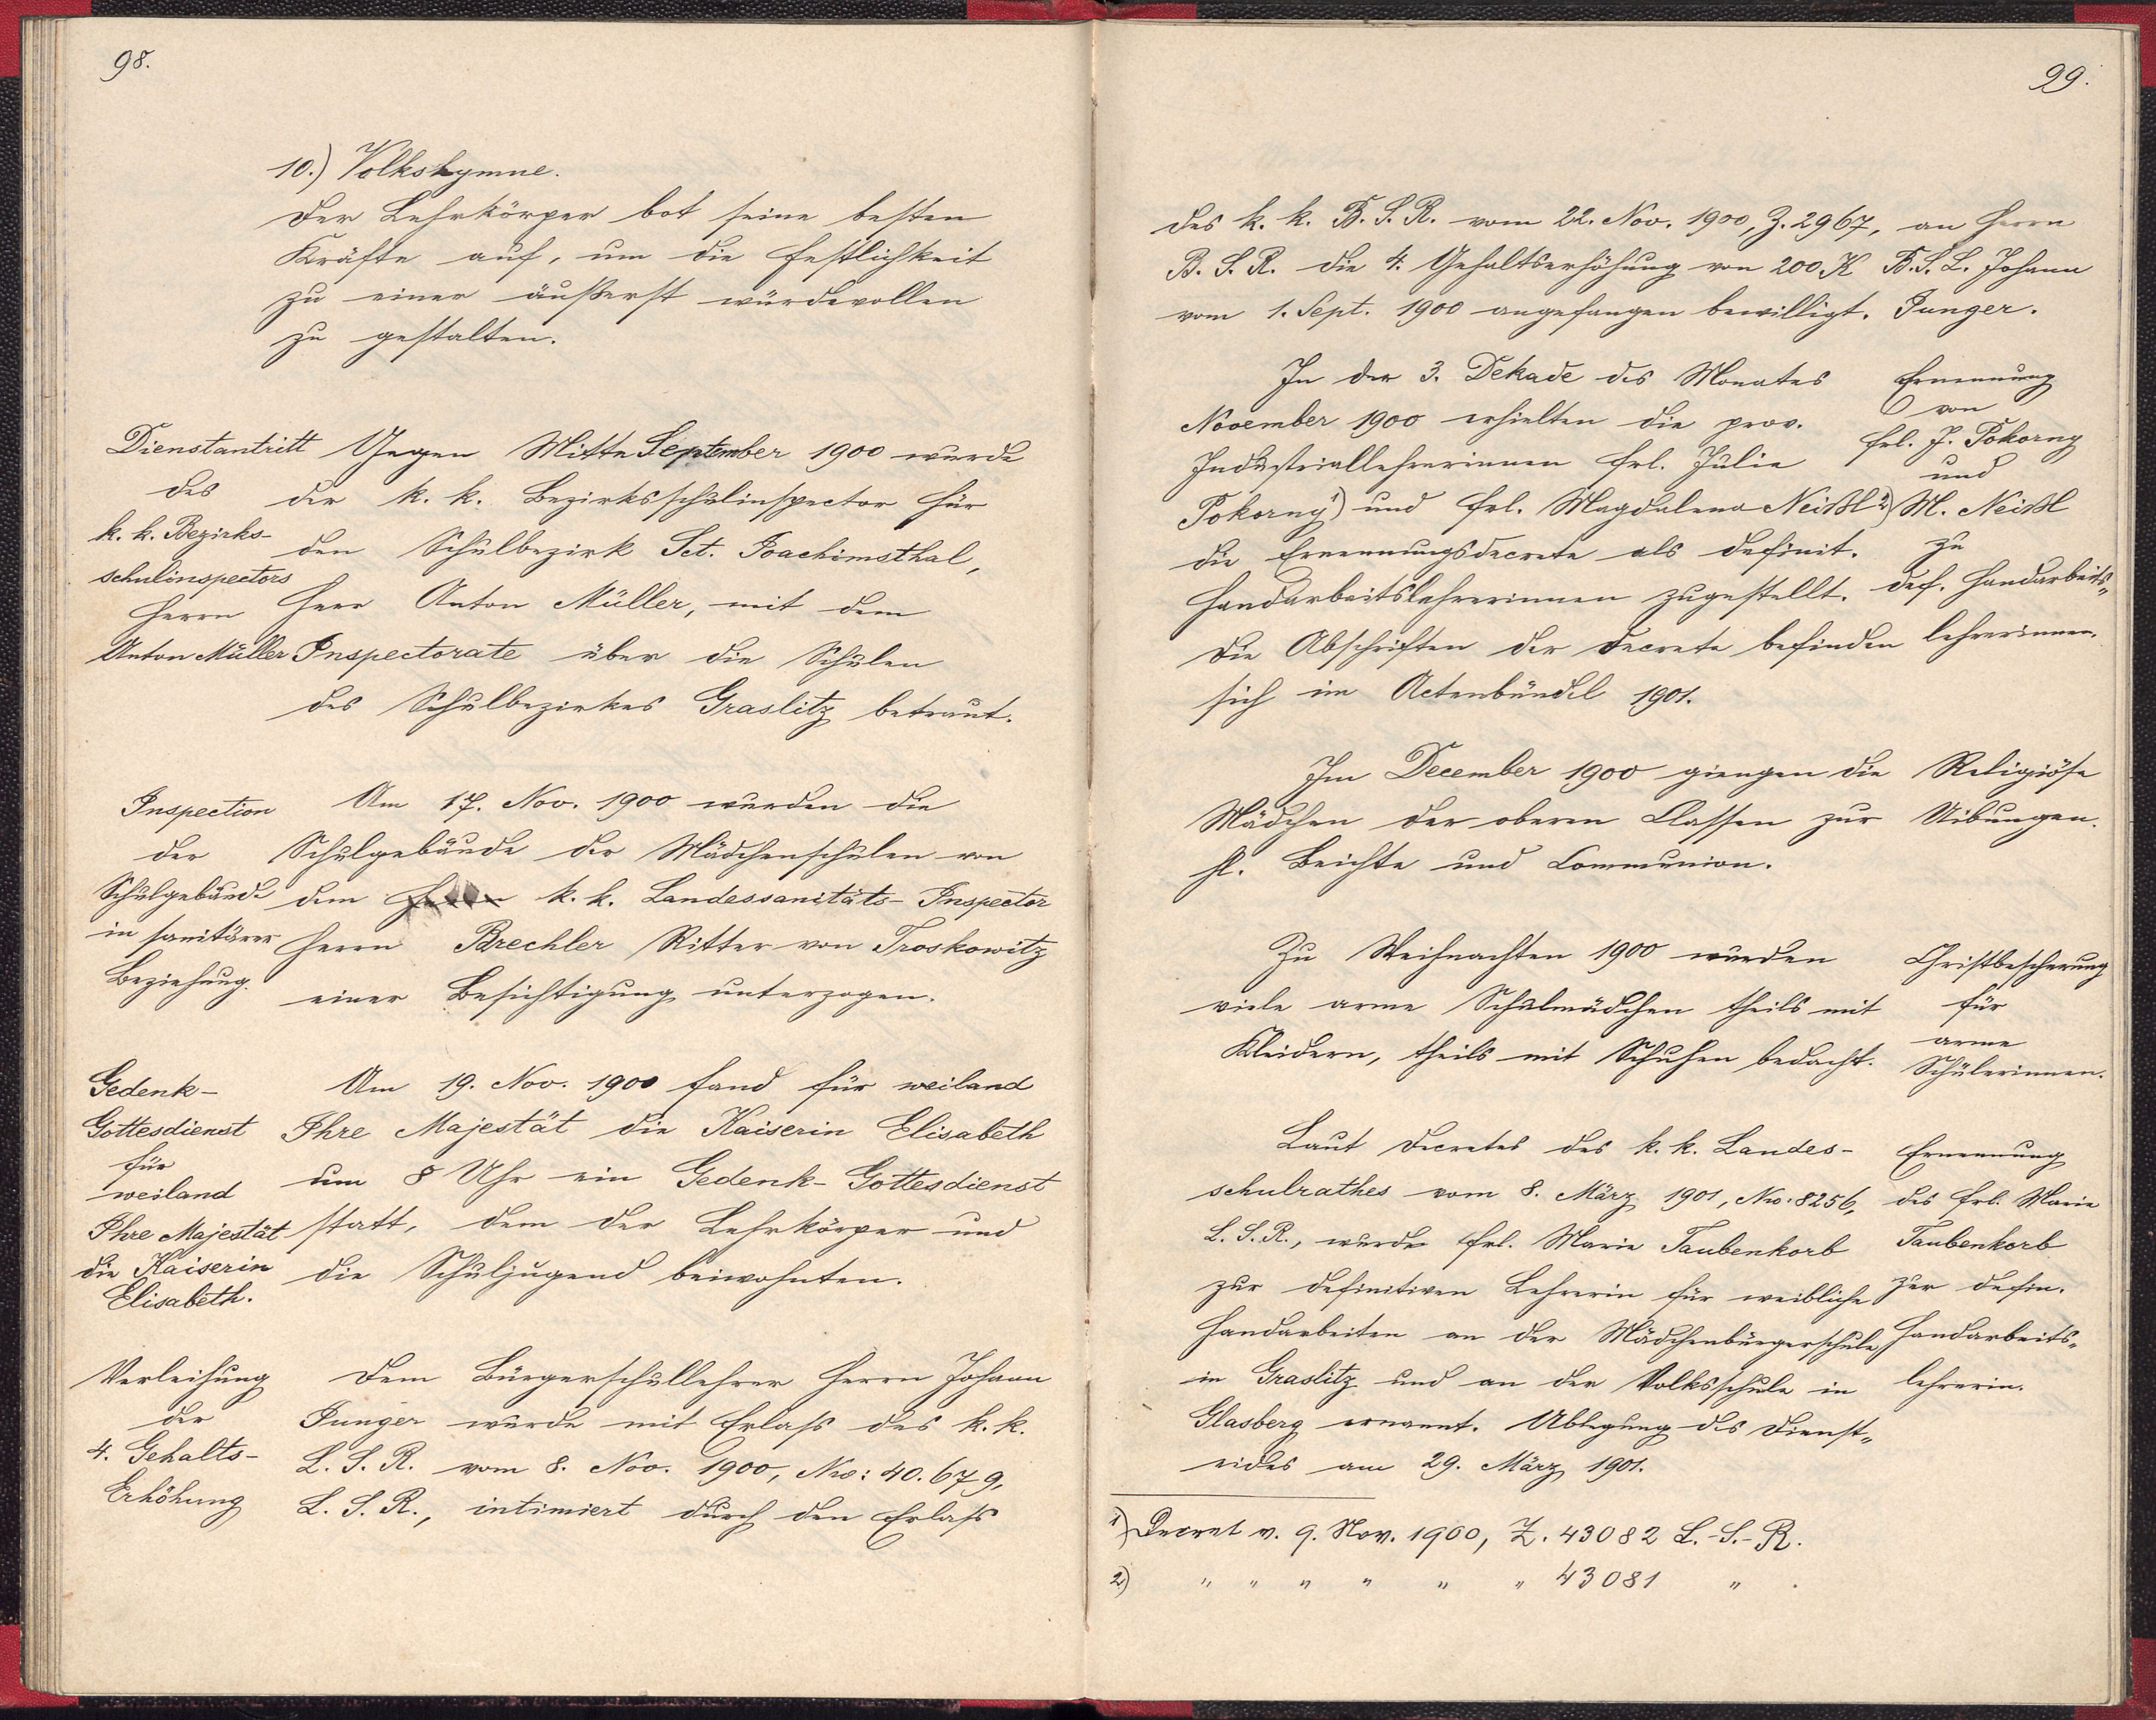 98.
10.) Volkshymne.
Der Lehrkörper bot seine besten
Kräfte auf, um die Festlichkeit
zu einer äußerst würdevollen
zu gestalten.
Dienstantritt
des
k. k. Bezirks-
schulinspectors
Herrn
Anton Müller
Gegen Mitte September 1900 wurde
der k. k. Bezirksschulinspector für
den Schulbezirk Sct. Joachimsthal,
Herr Anton Müller, mit dem
Inspectorate über die Schulen
des Schulbezirkes Graslitz betraut.
Inspection
der
Schulgebäude
in sanitärer
Beziehung.
Am 17. Nov. 1900 wurden die
Schulgebäude der Mädchenschulen von
dem Herrn k. k. Landessanitäts-Inspector
Herrn Brechler Ritter von Troskowitz
einer Besichtigung unterzogen.
Gedenk-
Gottesdienst
für
weiland
Ihre Majestät
die Kaiserin
Elisabeth.
Am 19. Nov. 1900 fand für weiland
Ihre Majestät die Kaiserin Elisabeth
um 8 Uhr ein Gedenk-Gottesdienst
statt, dem der Lehrkörper und
die Schuljugend beiwohnten.
Verleihung
der
4. Gehalts-
Erhöhung
Dem Bürgerschullehrer Herrn Johann
Junger wurde mit Erlaß des k. k.
L. S. R. vom 8. Nov. 1900, Nro: 40.679,
L. S. R., intimiert durch den Erlaß
99.
des k. k. B. S. R. vom 22. Nov. 1900, Z. 2967,
B. S. R. die 4. Gehaltserhöhung von 200 K
vom 1. Sept. 1900 angefangen bewilligt.
an Herrn
B. S. L. Johann
Junger.
In der 3. Dekade des Monates
November 1900 erhielten die prov.
Industriallehrerinnen Frl. Julie
Pokorny 1) und Frl. Magdalena Neißl 2)
die Ernennungsdecrete als definit.
Handarbeitslehrerinnen zugestellt.
Die Abschriften der Decrete befinden
sich im Actenbündel 1901.
Ernennung
von
Frl. J. Pokorny
und
M. Neißl
zu
def. Handarbeits„
lehrerinnen.
Im December 1900 giengen die
Mädchen der oberen Classen zur
hl. Beichte und Communion.
Religiöse
Uibungen.
Zu Weihnachten 1900 wurden
viele arme Schulmädchen theils mit
Kleidern, theils mit Schuhen bedacht.
Christbescherung
für
arme
Schülerinnen.
Laut Decretes des k. k. Landes-
schulrathes vom 8. März 1901, Nro: 8256,
L. S. R., wurde Frl. Marie Taubenkorb
zur definitiven Lehrerin für weibliche
Handarbeiten an der Mädchenbürgerschule
in Graslitz und an der Volksschule in
Glasberg ernannt. Ablegung des Dienst„
eides am 29. März 1901.
Ernennung
des Frl. Marie
Taubenkorb
zur defin.
Handarbeits„
lehrerin.
1) Decret v. 9. Nov. 1900, Z. 43082 L.-S.-R.
2) " " " " " " 43081 " .